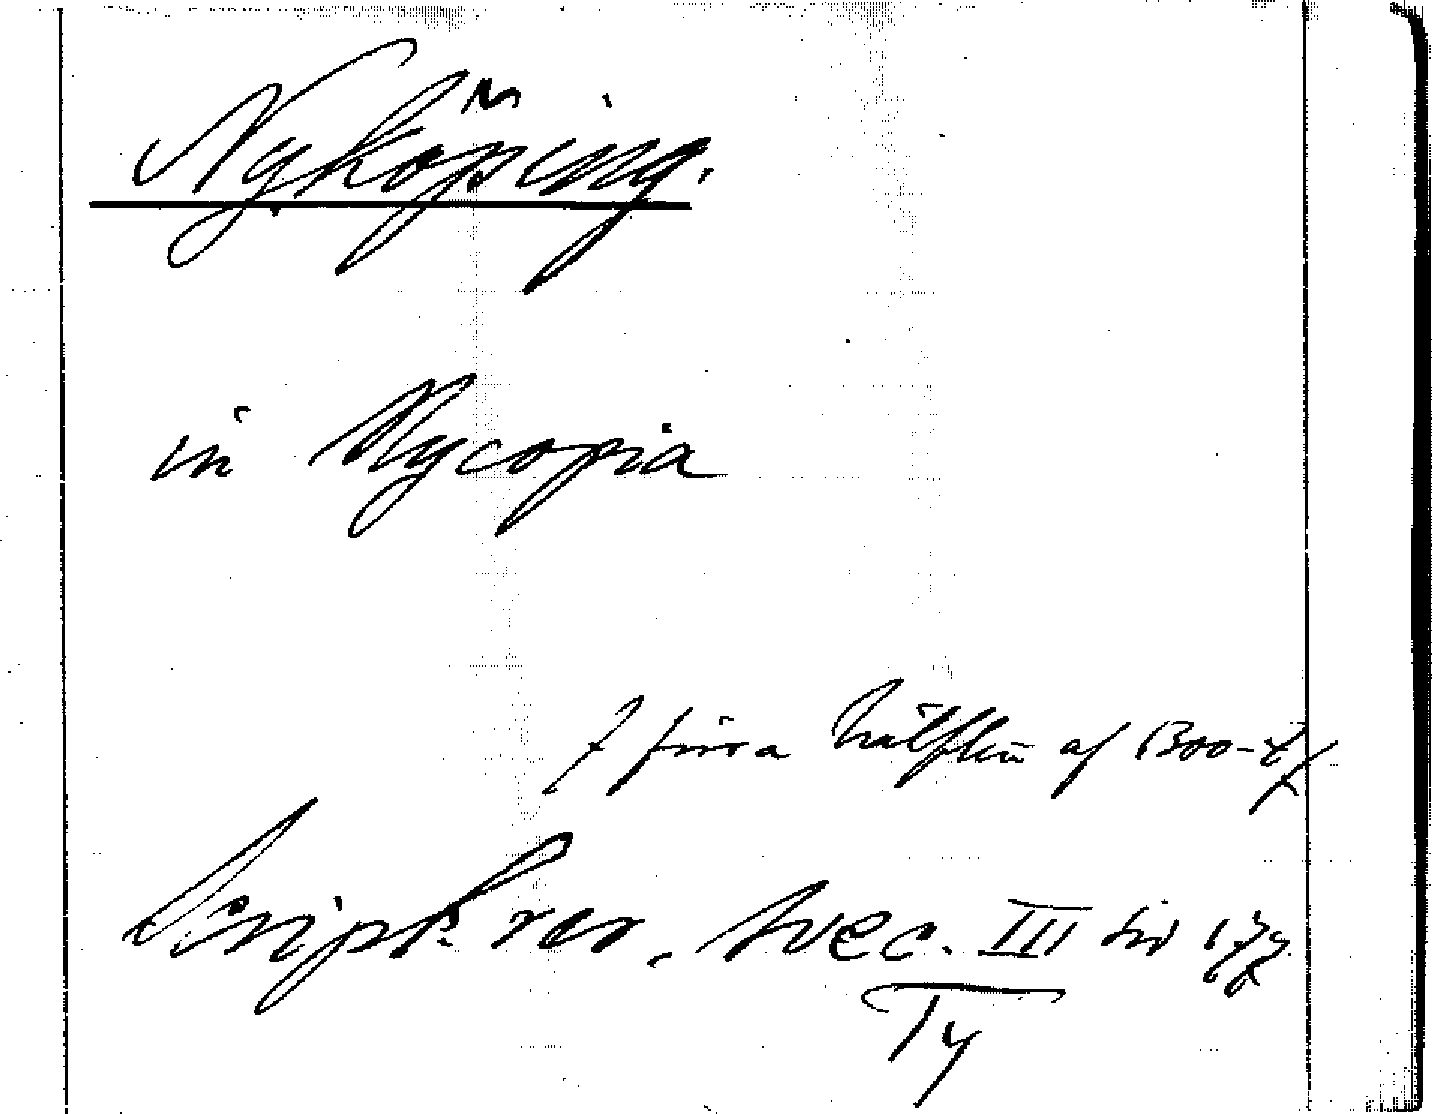 Nyköping.
in Nycopia
förra hälften af 1300-t
Script. rer. Svec. III sid 177